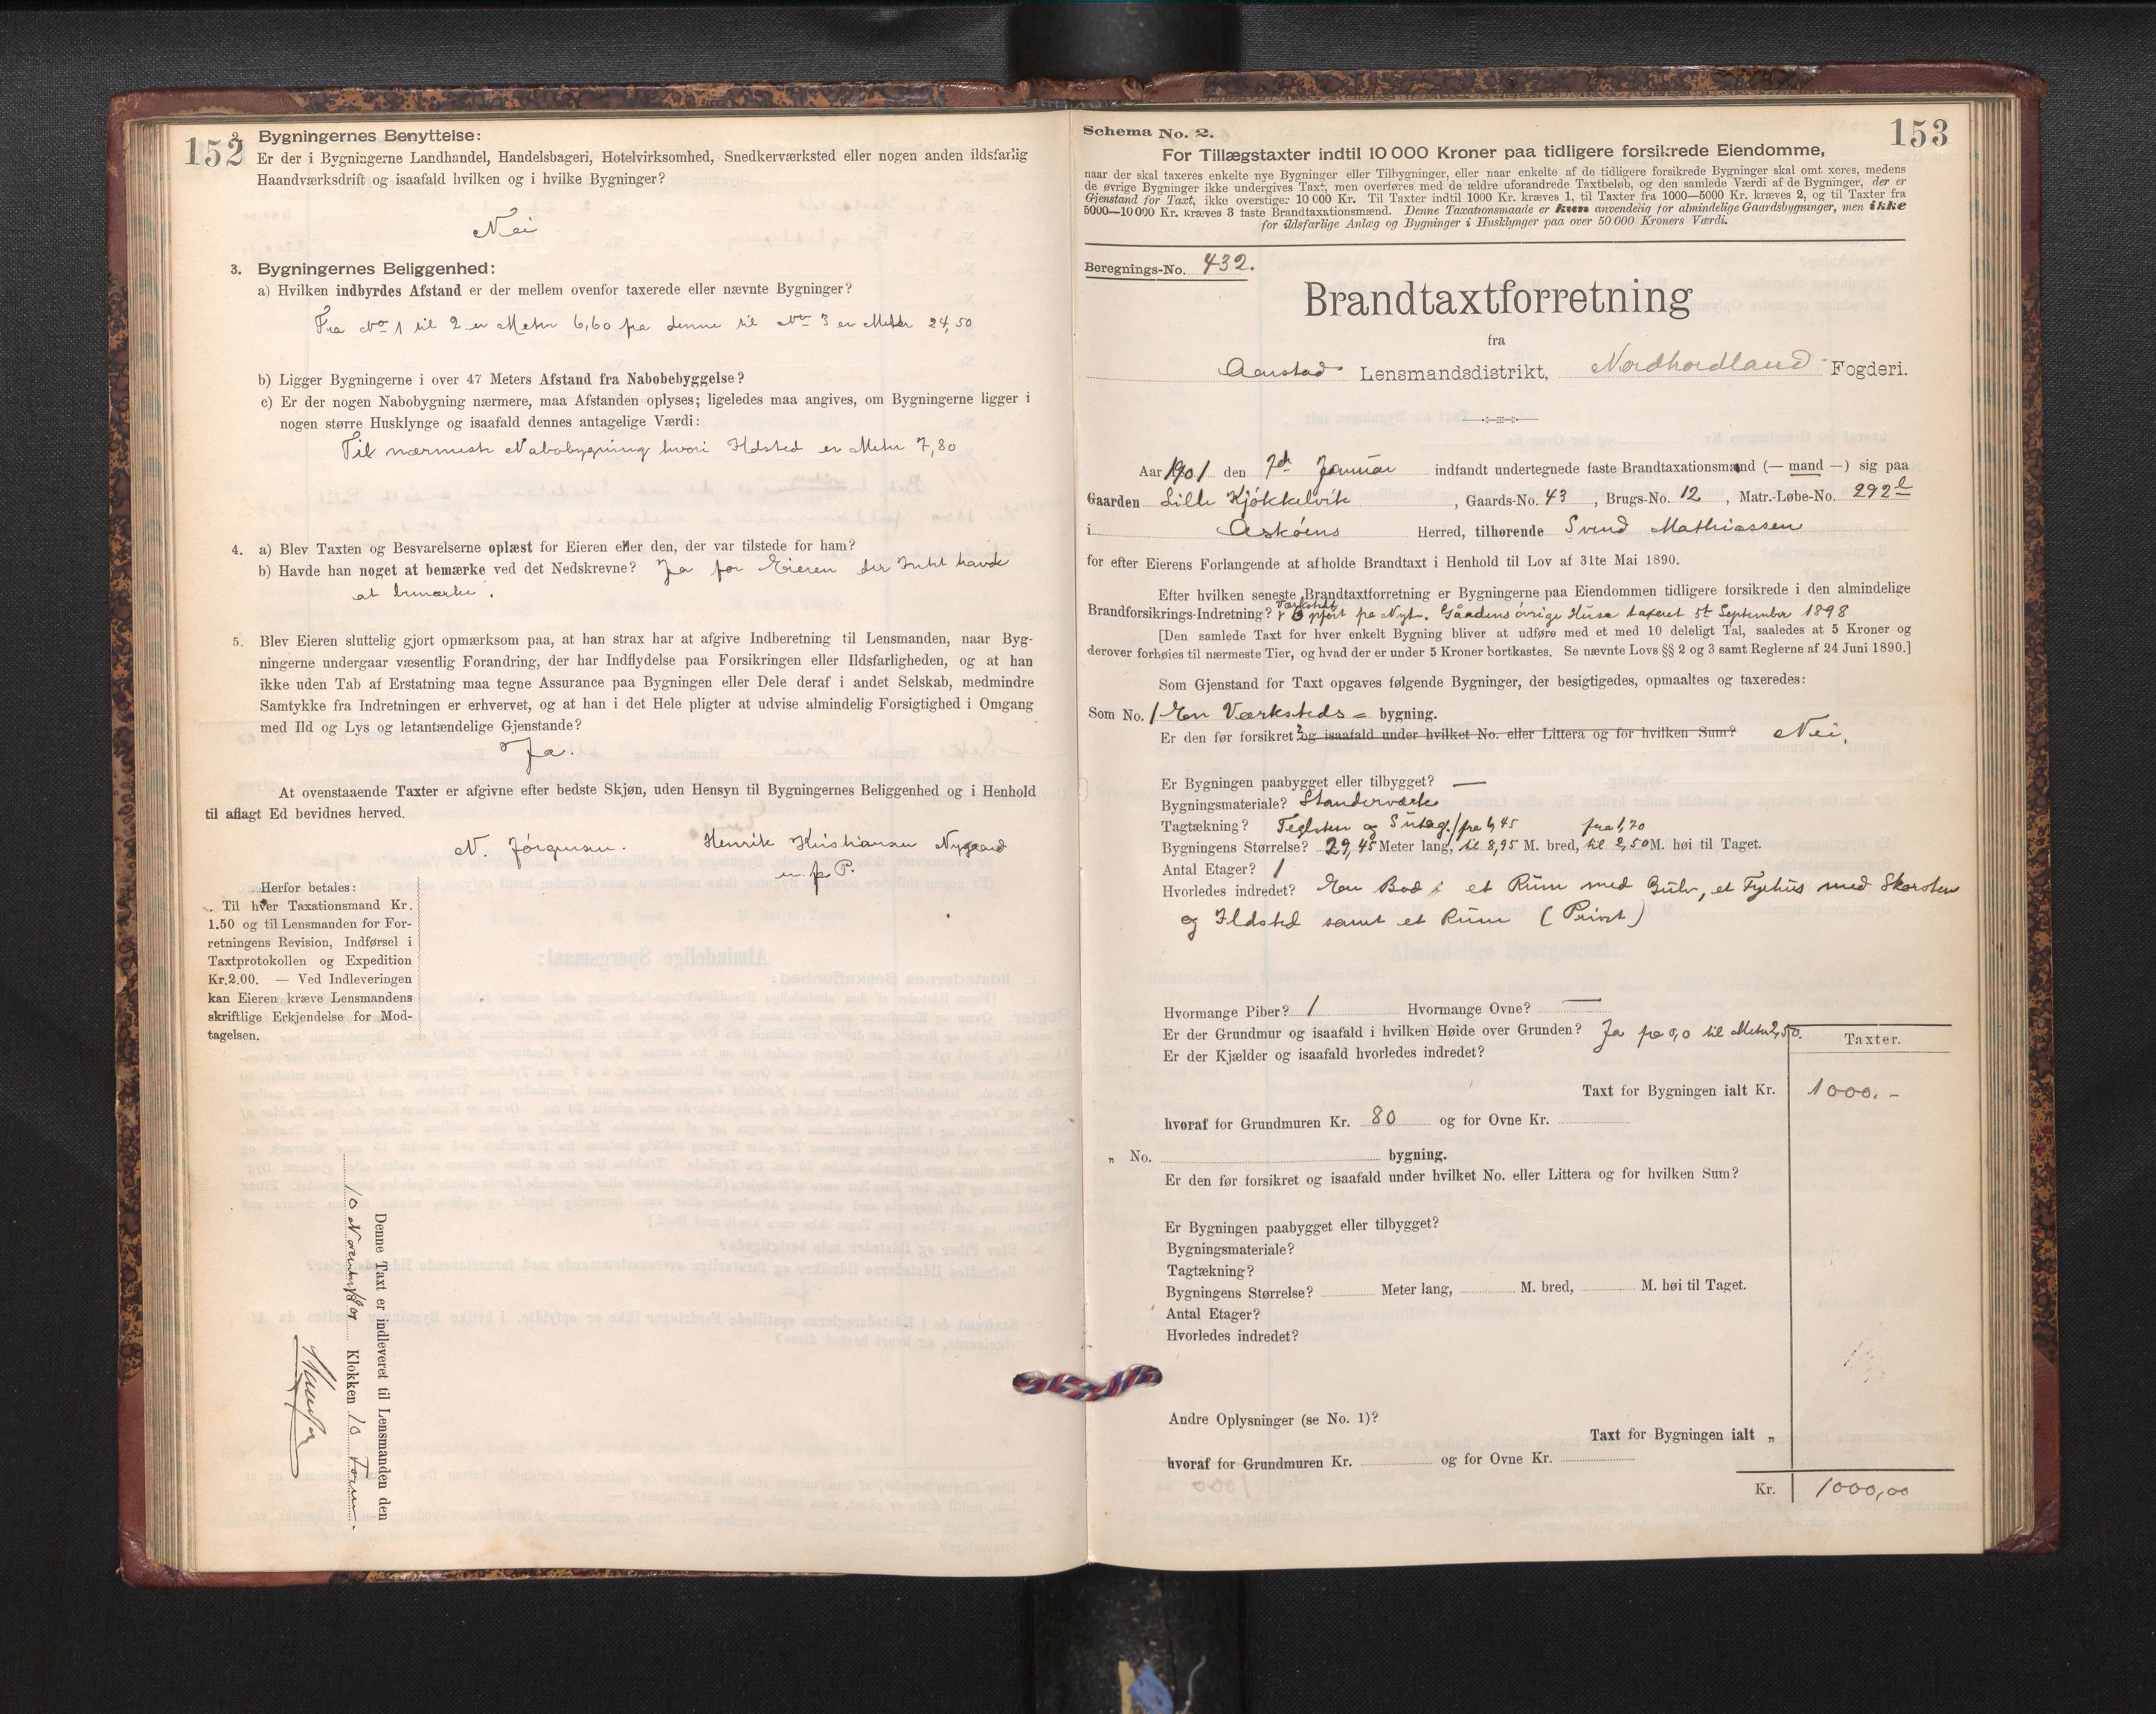 152
2. Bygningernes Benyttelse:
Er der i Bygningerne Landhandel, Handelsbageri, Hotelvirksomhed, Snedkerværksted eller nogen anden ildsfarlig
Haandværksdrift og isaafald hvilken og i hvilke Bygninger?
Nei
3. Bygningernes Beliggenhed:
a) Hvilken indbyrdes Afstand er der mellem ovenfor taxerede eller nævnte Bygninger?
Fra No 1 til 2 er Meter 6,60 fra denne til No 3 er Meter 24,50
b) Ligger Bygningerne i over 47 Meters Afstand fra Nabobebyggelse?
c) Er der nogen Nabobygning nærmere, maa Afstanden oplyses; ligeledes maa angives, om Bygningerne ligger i
nogen større Husklynge og isaafald dennes antagelige Værdi:
Til nærmeste Nabobygning hvori Ildsted er Meter 7,80
4. a) Blev Taxten og Besvarelserne oplæst for Eieren eller den, der var tilstede for ham?
b) Havde han noget at bemærke ved det Nedskrevne? Ja for Eieren der Intet havde
at bemærke.
5. Blev Eieren sluttelig gjort opmærksom paa, at han strax har at afgive Indberetning til Lensmanden, naar Byg-
ningerne undergaar væsentlig Forandring, der har Indflydelse paa Forsikringen eller Ildsfarligheden, og at han
ikke uden Tab af Erstatning maa tegne Assurance paa Bygningen eller Dele deraf i andet Selskab, medmindre
Samtykke fra Indretningen er erhvervet, og at han i det Hele pligter at udvise almindelig Forsigtighed i Omgang
med Ild og Lys og letantændelige Gjenstande?
Ja.
At ovenstaaende Taxter er afgivne efter bedste Skjøn, uden Hensyn til Bygningernes Beliggenhed og i Henhold
til aflagt Ed bevidnes herved.
N. Jörgensen. Henrik Kristiansen Nygaard
m. p. P.
Herfor betales:
Til hver Taxationsmand Kr.
1.50 og til Lensmanden for For-
retningens Revision, Indførsel i
Taxtprotokollen og Expedition
Kr.2.00. — Ved Indleveringen
kan Eieren kræve Lensmandens
skriftlige Erkjendelse for Mod-
tagelsen.
Denne Taxt er indleveret til Lensmanden den
10 November Klokken 10 Form.
Schema No. 2.
153
For Tillægstaxter indtil 10 000 Kroner paa tidligere forsikrede Eiendomme,
naar der skal taxeres enkelte nye Bygninger eller Tilbygninger, eller naar enkelte af de tidligere forsikrede Bygninger skal omt xeres, medens
de øvrige Bygninger ikke undergives Taxt, men overføres med de ældre uforandrede Taxtbeløb, og den samlede Værdi af de Bygninger, der er
Gjenstand for Taxt, ikke overstiger 10 000 Kr. Til Taxter indtil 1000 Kr. kræves 1, til Taxter fra 1000—5000 Kr. kræves 2, og til Taxter fra
5000—10 000 Kr. kræves 3 faste Brandtaxationsmænd. Denne Taxationsmaade er kun anvendelig for almindelige Gaardsbygninger, men ikke
for ildsfarlige Anlæg og Bygninger i Husklynger paa over 50 000 Kroners Værdi.
Beregnings-No. 432.
Brandtaxtforretning
fra
Lensmandsdistrikt, Nordhordland Fogderi.
Aar 1901 den 7de Januar indfandt undertegnede faste Brandtaxationsmænd (— mand —) sig paa
Gaarden Lille Kjökkelvik, Gaards-No. 43, Brugs-No. 12, Matr.-Løbe-No. 292 l
i Asköens Herred, tilhørende Svend Mathiassen
for efter Eierens Forlangende at afholde Brandtaxt i Henhold til Lov af 31te Mai 1890.
Efter hvilken seneste Brandtaxtforretning er Bygningerne paa Eiendommen tidligere forsikrede i den almindelige
Værkstedt
Brandforsikrings-Indretning? Opført fra Nyt. Gaardens övrige Huse taxeret 5t September 1898
[Den samlede Taxt for hver enkelt Bygning bliver at udføre med et med 10 deleligt Tal, saaledes at 5 Kroner og
derover forhøies til nærmeste Tier, og hvad der er under 5 Kroner bortkastes. Se nævnte Lovs §§ 2 og 3 samt Reglerne af 24 Juni 1890.]
Som Gjenstand for Taxt opgaves følgende Bygninger, der besigtigedes, opmaaltes og taxeredes:
Som No. 1 En Værksteds= bygning.
Er den før forsikret? og isaafald under hvilket No. eller Littera og for hvilken Sum? Nei.
Er Bygningen paabygget eller tilbygget? —
Bygningsmateriale? Standerværk
Tagtækning? Teglsten og / fra 6,45 fra 1,70
Bygningens Størrelse? 29,45 Meter lang, til 8,95 M. bred, til 2,50 M. høi til Taget.
Antal Etager? 1
Hvorledes indredet? En Bod i et Rum med Gulv, et Fyrhus med Skorsten
og Ildsted samt et Rum (Privet)
Hvormange Piber? 1 Hvormange Ovne? —
Er der Grundmur og isaafald i hvilken Høide over Grunden? Ja fra 0,0 til Meter 2,50.
Er der Kjælder og isaafald hvorledes indredet?
Taxter.
Taxt for Bygningen ialt Kr. 1000.-
hvoraf for Grundmuren Kr. 80 og for Ovne Kr.
„ No. bygning.
Er den før forsikret og isaafald under hvilket No. eller Littera og for hvilken Sum?
Er Bygningen paabygget eller tilbygget?
Bygningsmateriale?
Tagtækning?
Bygningens Størrelse? Meter lang, M. bred, M. høi til Taget.
Antal Etager?
Hvorledes indredet?
Andre Oplysninger (se No. 1)?
Taxt for Bygningen ialt „
hvoraf for Grundmuren Kr. og for Ovne Kr.
Kr. 1000,00